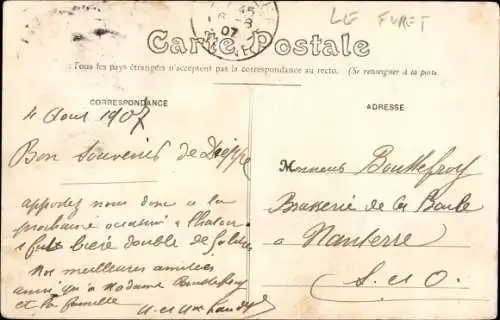 LE FURET
45
8
07
Carte Postale
Tous les pays étrangers n'acceptent pas la correspondance au recto. (Se renseigner à la poste
CORRESPONDANCE
ADRESSE
4 Aout 1907
Bon Souvenir de Dieppe
apportez nous donc a la
prochaine occasion a Chatou
1 fut bière double de
Nos meilleures amitiées
ainsi qu'a Madame Bouttefroy
et la famille
M. et Mme
Monsieur Bouttefroy
Brasserie de la Boule
a Nanterre
S. et O.